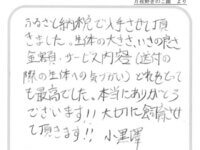 ふるさと納税で入手させて頂
きました。生体の大きさ、いきの良さ
重要、サービス内容(送付の
際の生体への気づかい)どれをとって
も最高でした。本当にありがとう
ございます!!大切に飼育させ
て頂きます!! 小黒澤